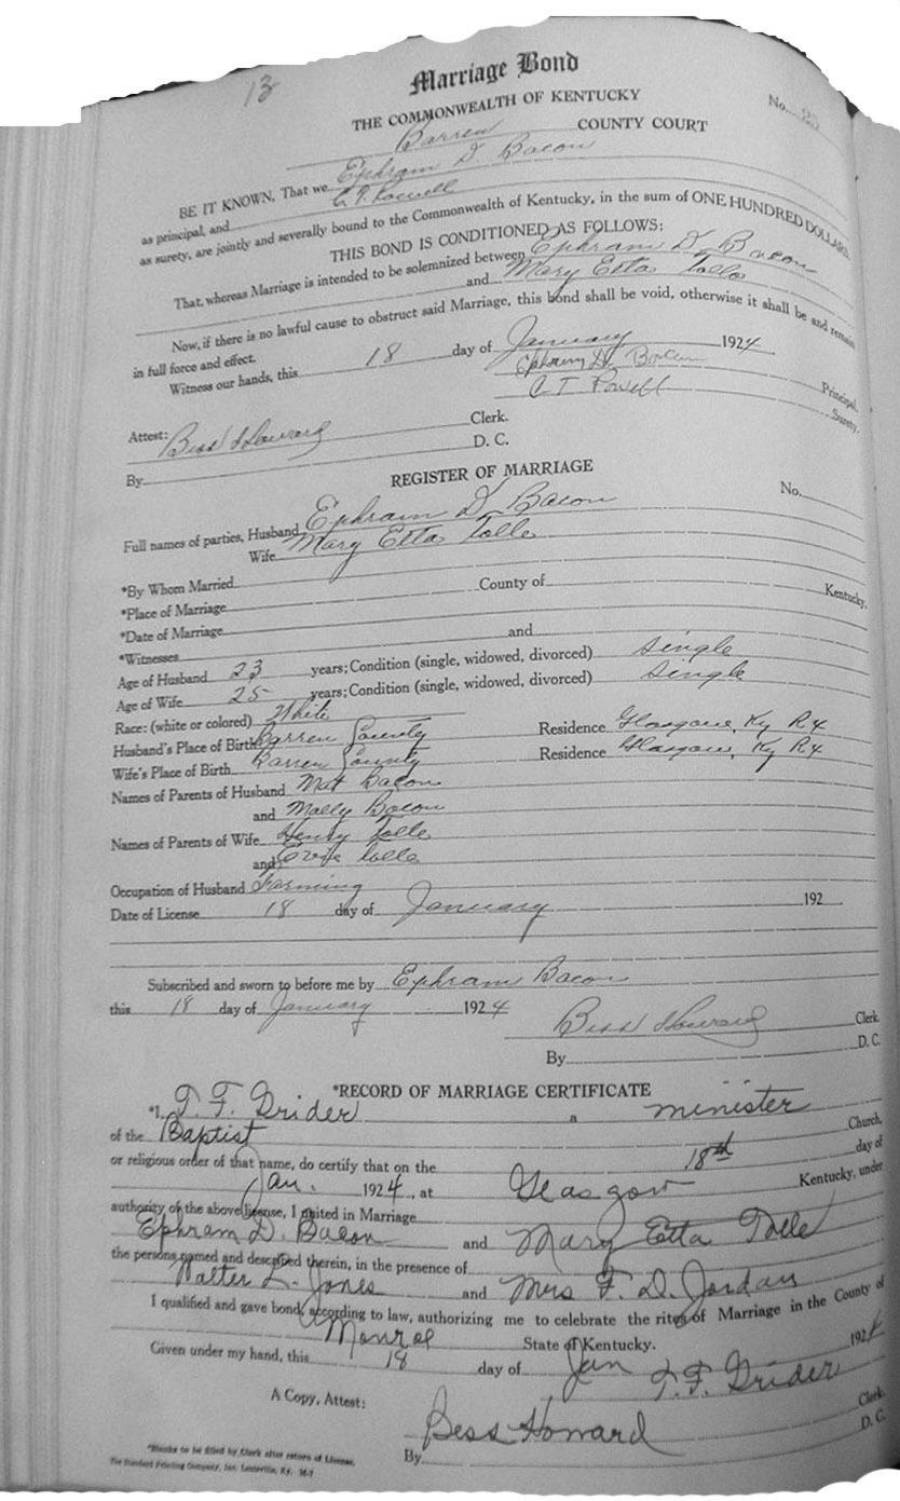 13
Marriage Bond
No.
THE COMMONWEALTH OF KENTUCKY
Barren COUNTY COURT
BE IT KNOWN, That we Ephram D. Bacon
as principal, and C. T. Powell
as surety, are jointly and severally bound to the Commonwealth of Kentucky, in the sum of ONE HUNDRED DOLLARS.
THIS BOND IS CONDITIONED AS FOLLOWS:
That, whereas Marriage is intended to be solemnized between Ephram D. Bacon
and Mary Etta Tolle
Now, if there is no lawful cause to obstruct said Marriage, this bond shall be void, otherwise it shall be and remain
in full force and effect.
Witness our hands, this 18 day of January 1924
Ephram D. Bacon Principal.
C T Powell Surety.
Attest: Bess Howard Clerk.
By D. C.
REGISTER OF MARRIAGE
No.
Full names of parties, Husband Ephram D. Bacon
Wife Mary Etta Tolle
*By Whom Married
*Place of Marriage County of Kentucky.
*Date of Marriage
*Witnesses and
Age of Husband 23 years; Condition (single, widowed, divorced) Single
Age of Wife 25 years; Condition (single, widowed, divorced) Single
Race: (white or colored) White
Husband's Place of Birth Barren County Residence Glasgow, Ky R4
Wife's Place of Birth Barren County Residence Glasgow, Ky R4
Names of Parents of Husband Mat Bacon
and Molly Bacon
Names of Parents of Wife Henry Tolle
and Tolle
Occupation of Husband Farming
Date of License 18 day of January 192
Subscribed and sworn to before me by Ephram Bacon
this 18 day of January 1924
Bess Howard Clerk
By D. C.
*RECORD OF MARRIAGE CERTIFICATE
*I, T. F. Grider a minister
of the Baptist Church,
or religious order of that name, do certify that on the 18th day of
Jan. 1924, at Glasgow Kentucky, under
authority of the above license, I united in Marriage
Ephram D. Bacon and Mary Etta Tolle
the persons named and described therein, in the presence of
Walter L. Jones and Mrs F. D. Jordan
I qualified and gave bond, according to law, authorizing me to celebrate the rites of Marriage in the County of
Monroe State of Kentucky.
Given under my hand, this 18 day of Jan 1924
T. F. Grider
A Copy, Attest:
Bess Howard Clerk
By D. C.
*Blanks to be filled by Clerk after return of License.
The Standard Printing Company, Inc. Louisville, Ky.